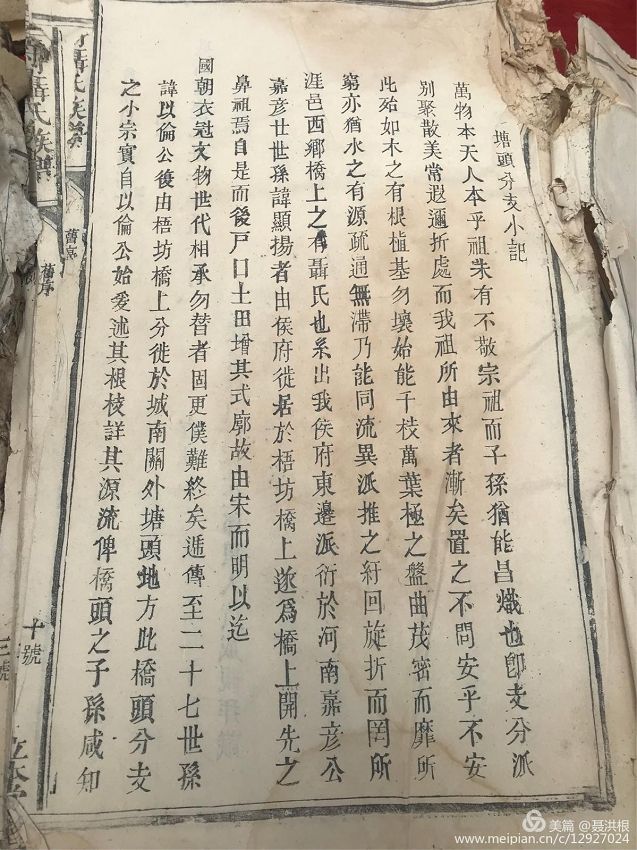 塘頭分支小記
萬物本天人本乎祖未有不敬宗祖而子孫猶能昌熾也卽支分派
別聚散美常遐邇折處而我祖所由來者漸矣置之不問安乎不安
此殆如木之有根植基勿壞始能千枝萬葉極之盤曲茂密而靡所
窮亦猶水之有源疏通無滯乃能同流異派推之紆回旋折而罔所
涯邑西鄉橋上之有聶氏也系出我侯府東邊派衍於河南嘉彦公
嘉彦廿世孫諱顯揚者由侯府徙居於梧坊橋上遂爲橋上開先之
鼻祖焉自是而後戸口土田增其式廓故由宋而明以迄
國朝衣冠文物世代相承勿替者固更僕難終矣遞傳至二十七世孫
諱以倫公後由梧坊橋上分徙於城南關外塘頭地方此橋頭分支
之小宗實自以倫公始爰述其根枝詳其源流俾橋頭之子孫咸知
聶氏族譜
舊序
十號
聶氏族譜
舊序
三號
美篇 @聶洪根
www.meipian.cn/c/12927024